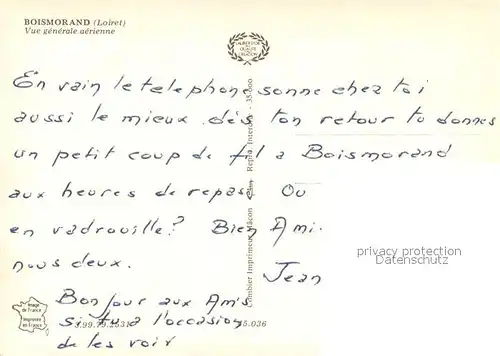 BOISMORAND (Loiret)
Vue générale aérienne
LAURIER D'OR
QUALITÉ
CREATION
En vain le telephone sonne chez toi
aussi le mieux dès ton retour tu donnes
un petit coup de fil a Boismorand
aux heures de repas. Ou
en vadrouille? Bien Ami.
nous deux.
Jean
Bonjour aux Amis
si tu a l'occasion
de les voir
Combier Imprimeur Mâcon
Repro. Interdite - 35.000
image
de France
Imprimée
en France
3.99.79.2531
35.036
privacy protection
Datenschutz